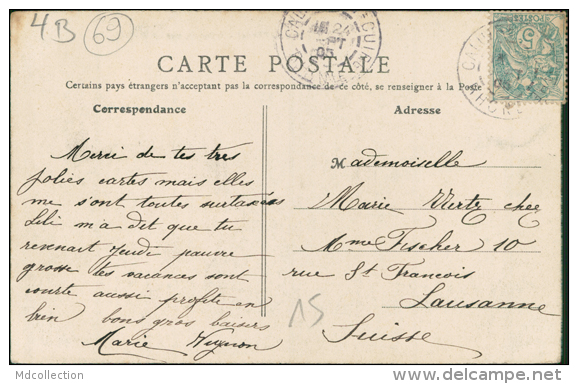 4B
69
CARTE POSTALE
Certains pays étrangers n'acceptant pas la correspondance de ce côté, se renseigner à la Poste
Correspondance
Merci de tes tres
jolies cartes mais elles
me s'ont toutes surtaxées
Lili m'a dit que tu
revenait Jeudi pauvre
grosse tes vacances sont
courte aussi profite en
bien bons gros baisers
Marie
Adresse
Mademoiselle
Marie Wertz chez
Mme Fischer 10
rue St Francois
Lausanne
Suisse
15
Mdcollection
www.delcampe.net